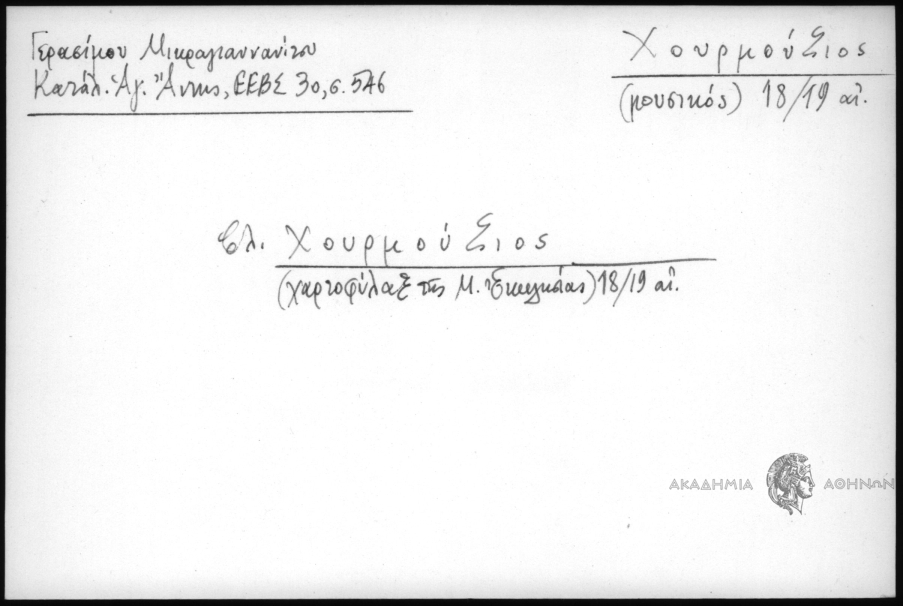 Γερασίμου Μικραγιαννανίτου
Κατάλ. Ἁγ. Ἄννης, ΕΕΒΣ 30, σ. 546
Χουρμούζιος
(μουσικός) 18/19 αἰ.
βλ. Χουρμούζιος
(χαρτοφύλαξ τῆς Μ. Ἐκκλησίας) 18/19 αἰ.
ΑΚΑΔΗΜΙΑ ΑΘΗΝΩΝ